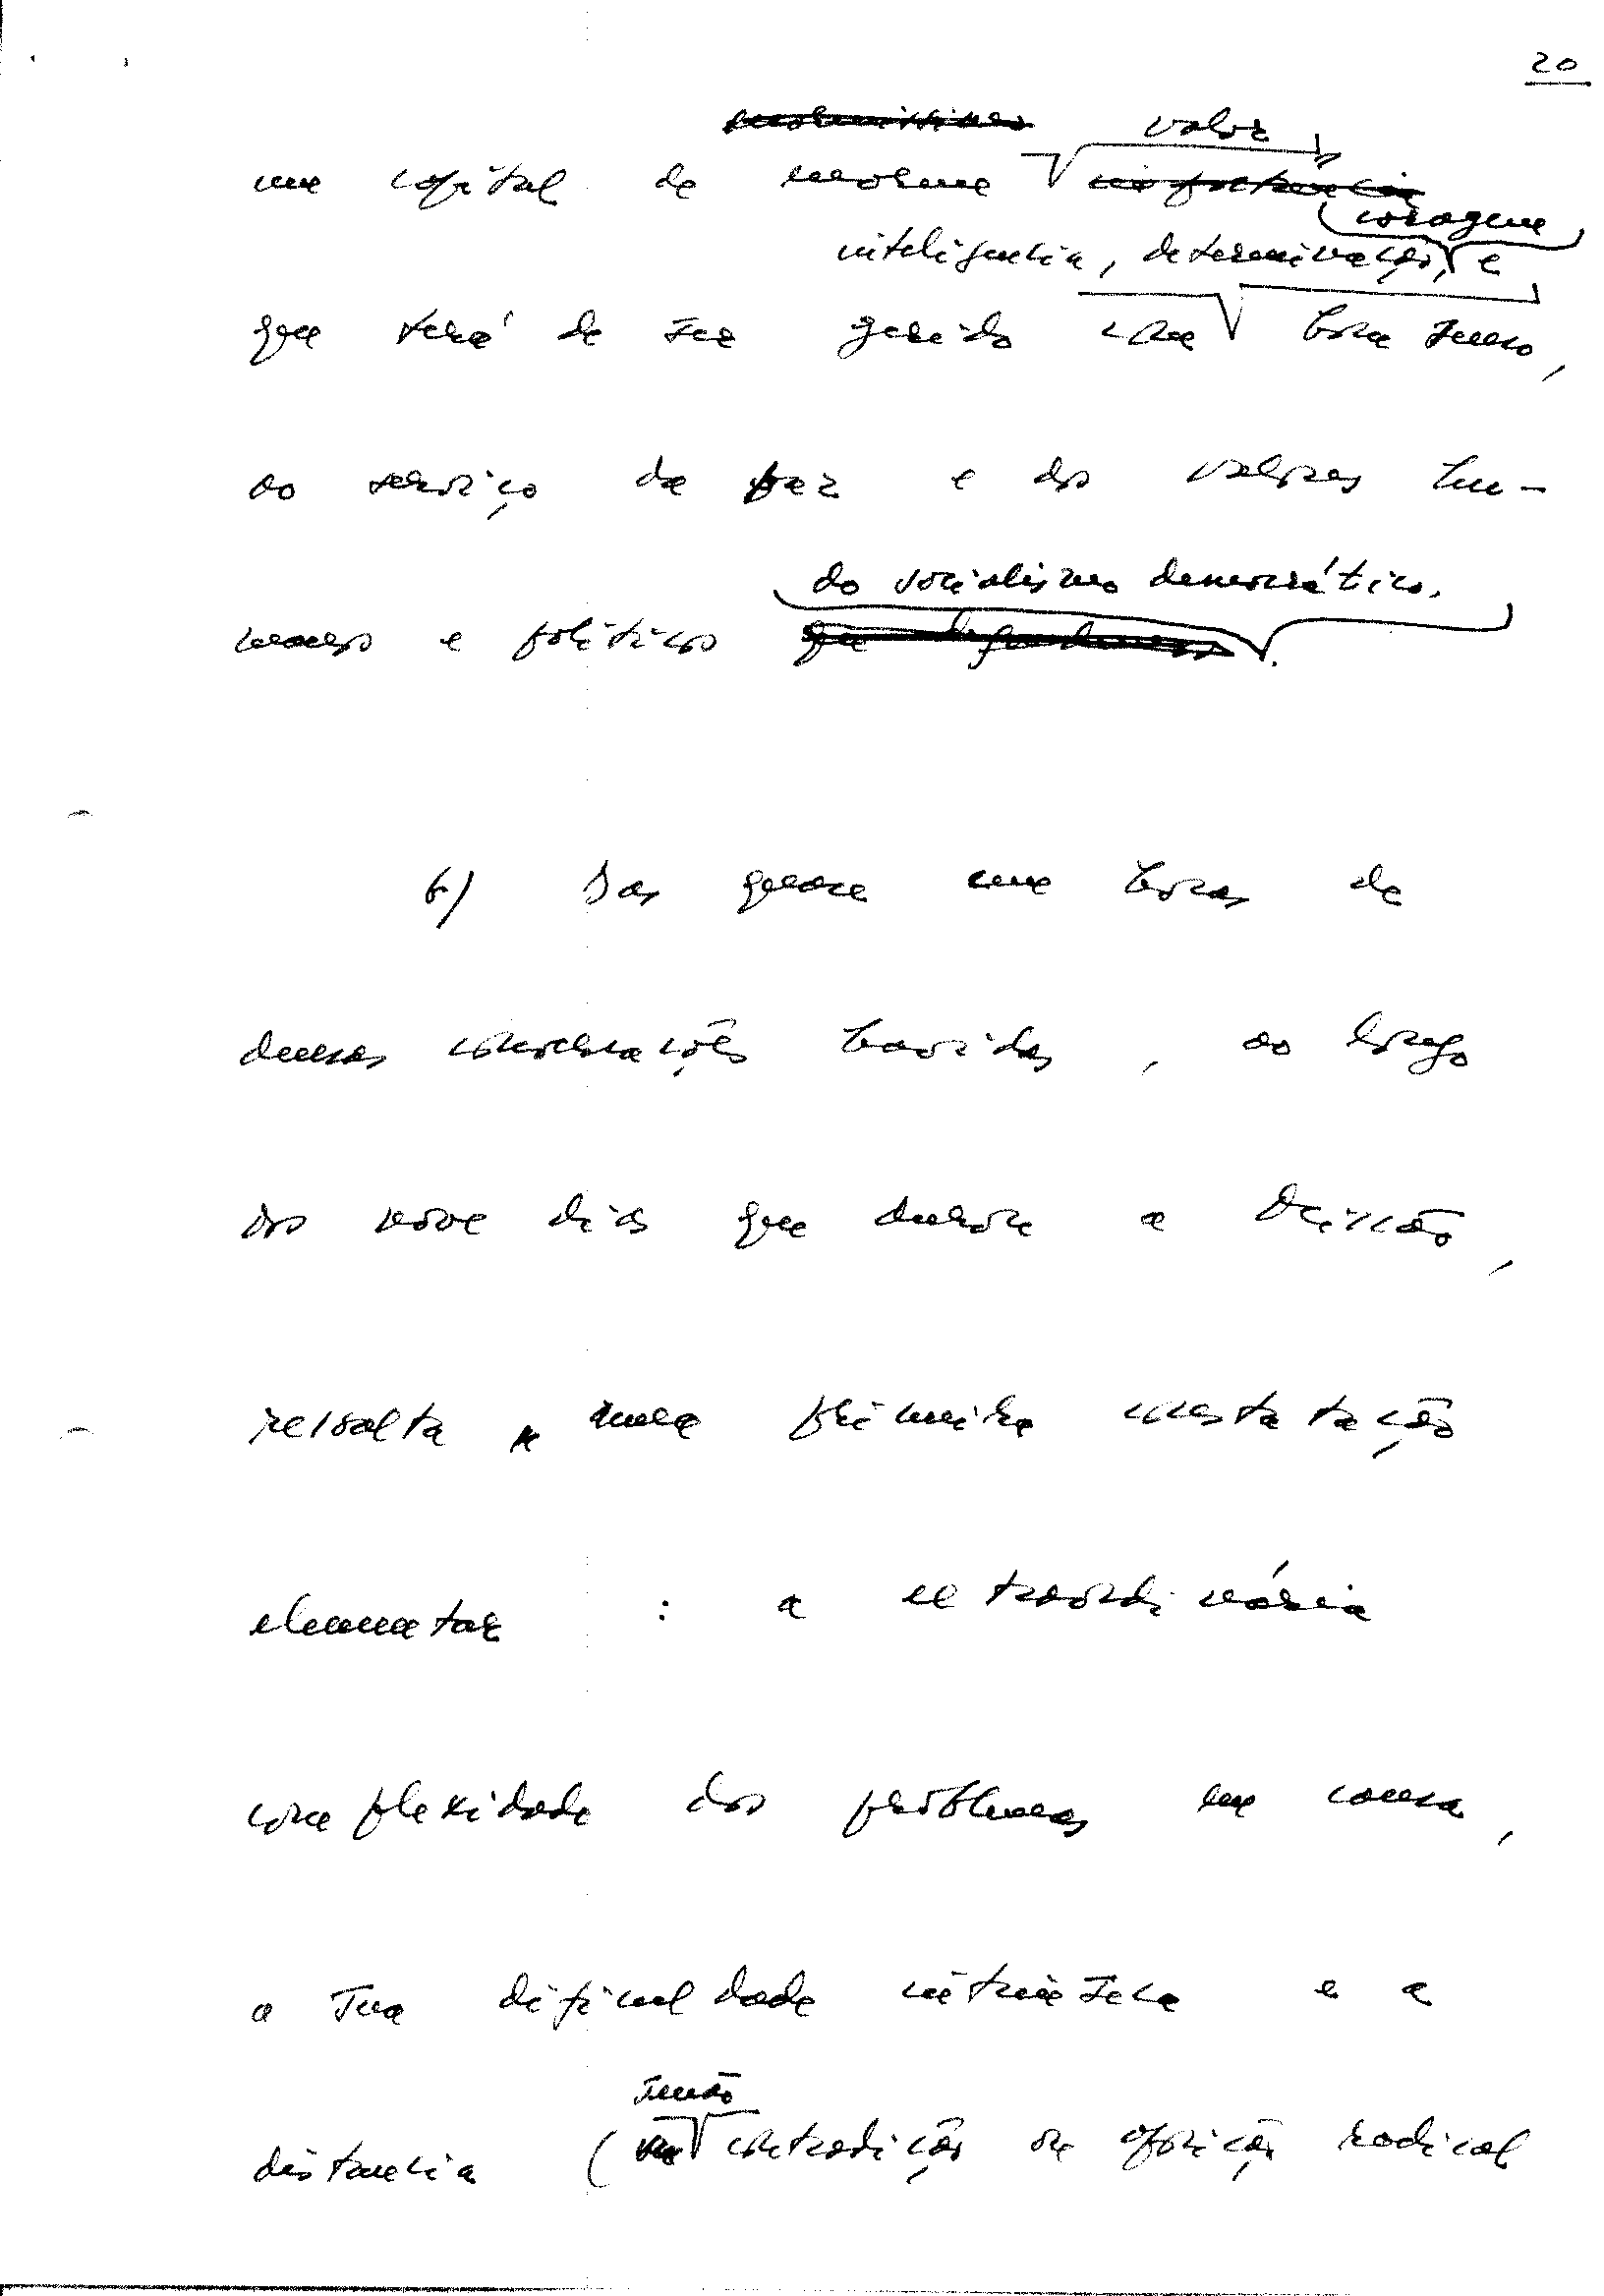 20
valor
um capital de enorme
coragem
inteligência, determinação, e
que terá de ser gerido com bom senso,
ao serviço da paz e dos valores hu-
do socialismo democrático.
manos e políticos
6) Das quase cem horas de
dessas conversações havidas, ao longo
dos nove dias que durou a Missão,
ressalta uma primeira constatação
elementar : a extraordinária
complexidade dos problemas em causa,
a sua dificuldade intrínseca e a
senão
distância ( contradição ou oposição radical